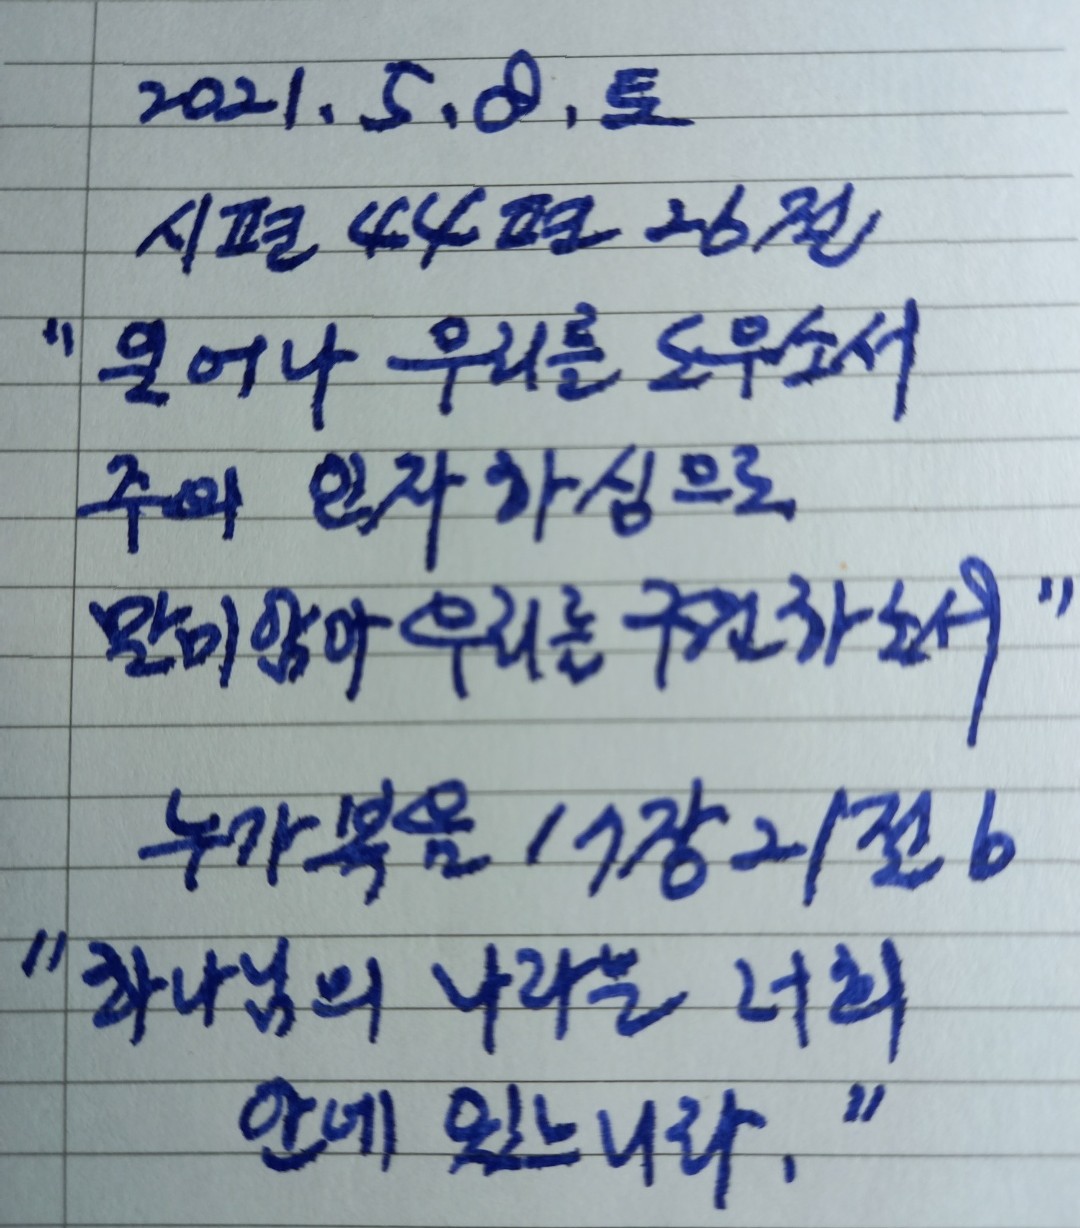 2021. 5. 8. 토
시편 44편 26절
"일어나 우리를 도우소서
주의 인자하심으로
말미암아 우리를 구원하소서"
누가복음 17장 21절 b
"하나님의 나라는 너희
안에 있느니라."